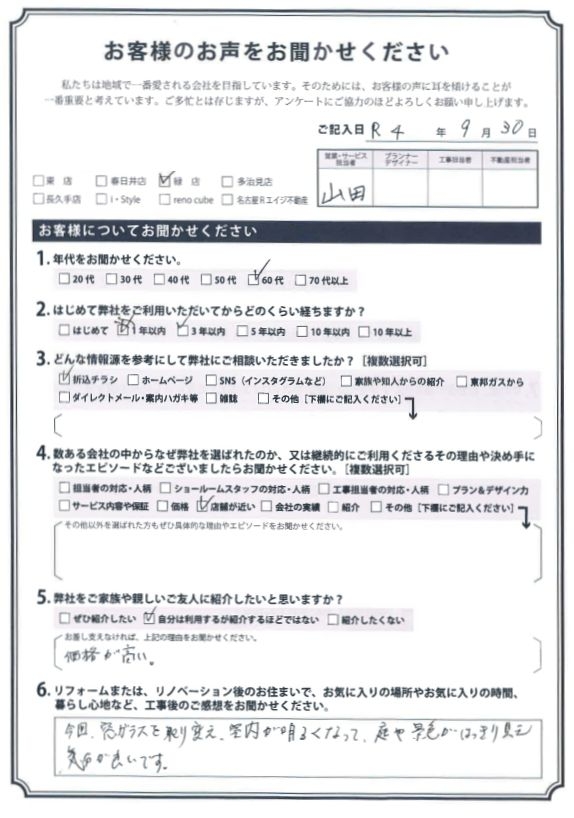 お客様のお声をお聞かせください
私たちは地域で一番愛される会社を目指しています。そのためには、お客様の声に耳を傾けることが
一番重要と考えています。ご多忙とは存じますが、アンケートにご協力のほどよろしくお願い申し上げます。
ご記入日 R4 年 9 月 30 日
営業・サービス担当者 プランナーデザイナー 工事担当者 不動産担当者
山田
□東 店 □春日井店 ☑緑 店 □多治見店
□長久手店 □i・Style □reno cube □名古屋Rエイジ不動産
お客様についてお聞かせください
1. 年代をお聞かせください。
□20代 □30代 □40代 □50代 ☑60代 □70代以上
2. はじめて弊社をご利用いただいてからどのくらい経ちますか？
□はじめて □1年以内 ☑3年以内 □5年以内 □10年以内 □10年以上
3. どんな情報源を参考にして弊社にご相談いただきましたか？［複数選択可］
☑折込チラシ □ホームページ □SNS（インスタグラムなど） □家族や知人からの紹介 □東邦ガスから
□ダイレクトメール・案内ハガキ等 □雑誌 □その他［下欄にご記入ください］
4. 数ある会社の中からなぜ弊社を選ばれたのか、又は継続的にご利用くださるその理由や決め手に
なったエピソードなどございましたらお聞かせください。［複数選択可］
□担当者の対応・人柄 □ショールームスタッフの対応・人柄 □工事担当者の対応・人柄 □プラン&デザイン力
□サービス内容や保証 □価格 ☑店舗が近い □会社の実績 □紹介 □その他［下欄にご記入ください］
その他以外を選ばれた方もぜひ具体的な理由やエピソードをお聞かせください。
5. 弊社をご家族や親しいご友人に紹介したいと思いますか？
□ぜひ紹介したい ☑自分は利用するが紹介するほどではない □紹介したくない
お差し支えなければ、上記の理由をお聞かせください。
価格が高い。
6. リフォームまたは、リノベーション後のお住まいで、お気に入りの場所やお気に入りの時間、
暮らし心地など、工事後のご感想をお聞かせください。
今回、窓ガラスを取り変え、室内が明るくなって、庭や景色がはっきり見え
気分が良いです。